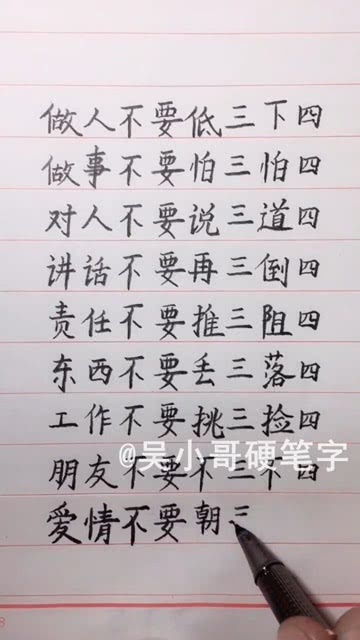 做人不要低三下四
做事不要怕三怕四
对人不要说三道四
讲话不要再三倒四
责任不要推三阻四
东西不要丢三落四
工作不要挑三捡四
@吴小哥硬笔字
朋友不要不三不四
爱情不要朝三
8